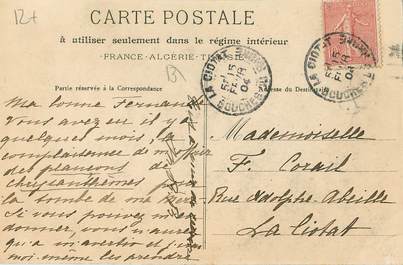 12+
CARTE POSTALE
à utiliser seulement dans le régime intérieur
FRANCE-ALGÉRIE-TUNISIE
Partie réservée à la Correspondance
Adresse du Destinataire
LA CIOTAT
15
FEVR
04
BOUCHES DU RHONE
LA CIOTAT
15
FEVR
04
BOUCHES DU RHONE
Ma bonne Fernande
vous avez eu il y a
quelques mois, la
complaisance de
des plançons de
chrysanthèmes pour
la tombe de ma
Si vous pouvez m'en
donner, vous n'aurez
qu'à m'avertir et j'irai
moi-même les prendre
Mademoiselle
F. Corail
Rue Adolphe Abeille
La Ciotat